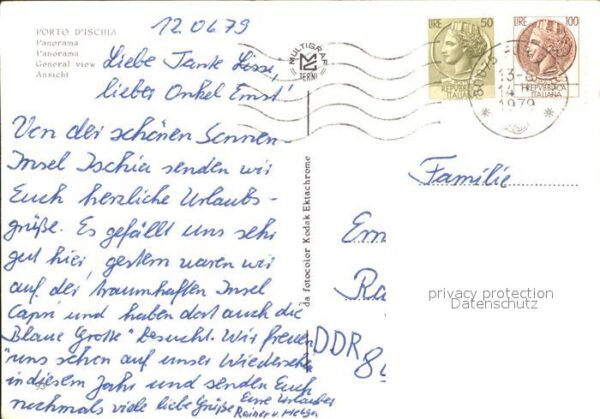 12.06.79
PORTO D'ISCHIA
Panorama
Panorama
General view
Ansicht
Liebe Tante Lissi,
lieber Onkel Ernst!
Von der schönen Sonnen-
Insel Ischia senden wir
Euch herzliche Urlaubs-
grüße. Es gefällt uns sehr
gut hier, gestern waren wir
auf der traumhaften Insel
Capri und haben dort auch die
"Blaue Grotte" besucht. Wir freuen
uns schon auf unser Wiedersehen
in diesem Jahr und senden Euch
nochmals viele liebe Grüße Eure Urlauber
Rainer u. Helga
MULTIGRAF
TERNI
da fotocolor Kodak Ektachrome
LIRE 50
REPUBBLICA
ITALIANA
LIRE 100
REPUBBLICA
ITALIANA
13-
14
1979
Familie
Em
Ra
DDR
privacy protection
Datenschutz